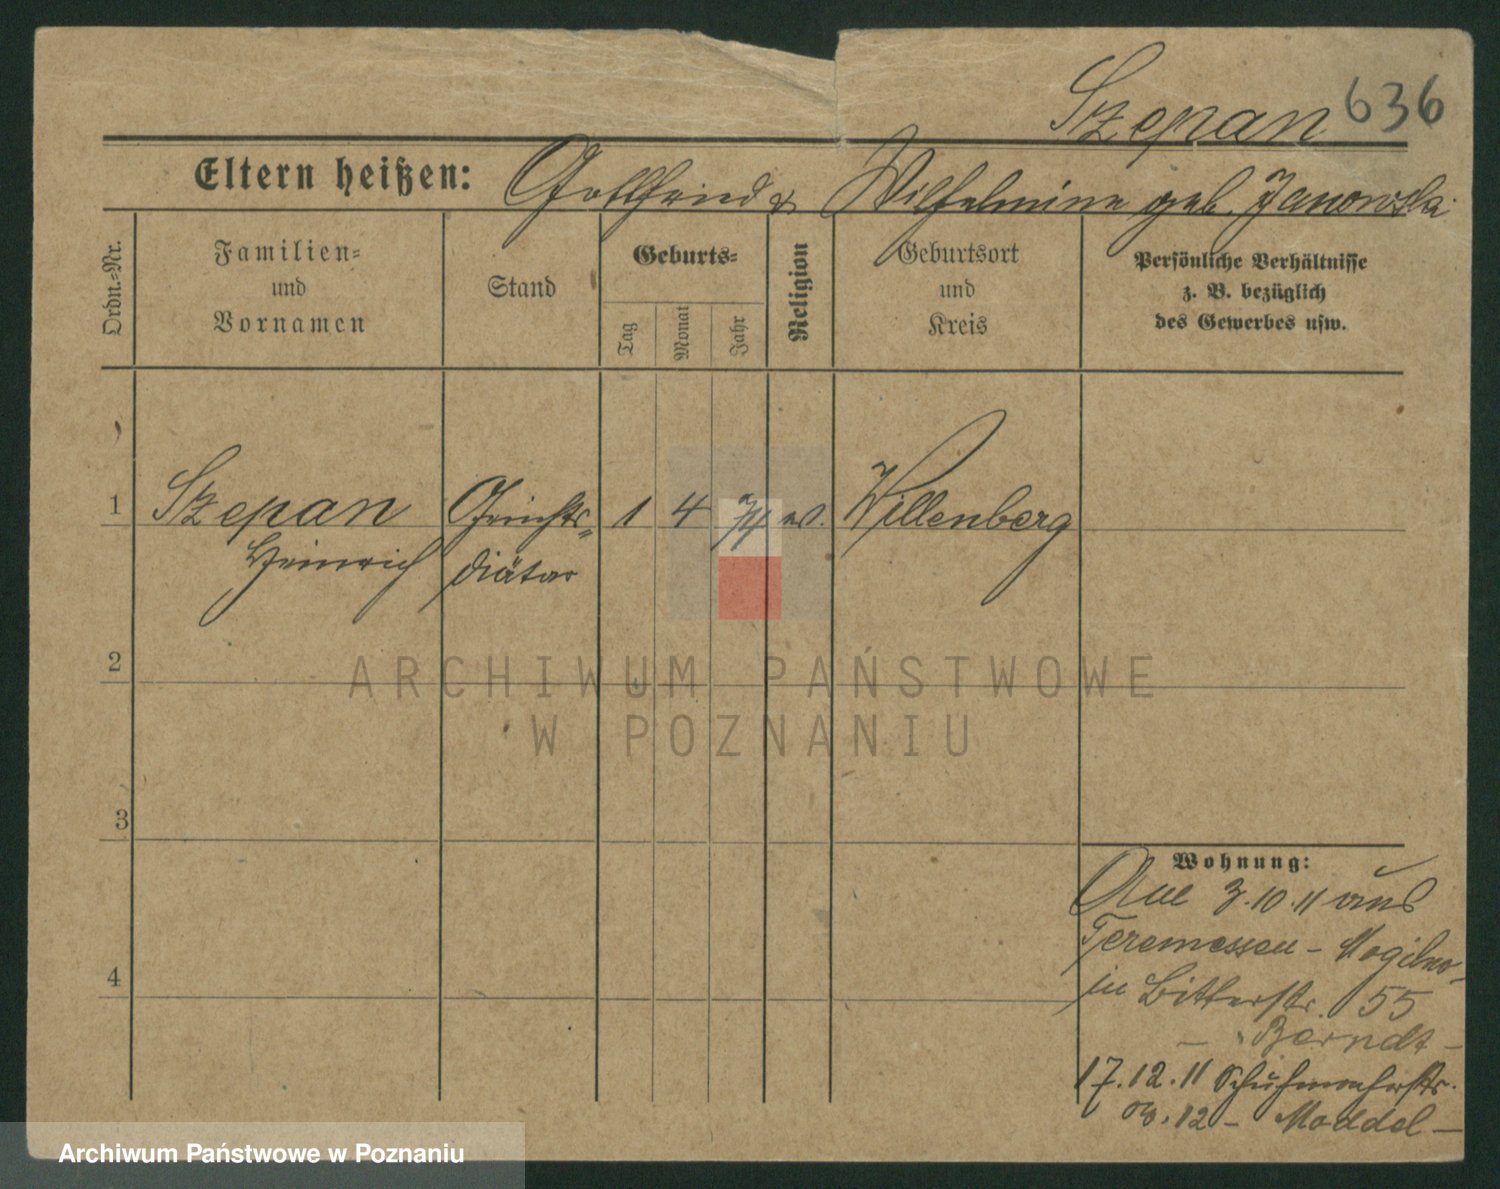 Szepan 636
Eltern heißen: Gottfried & Wilhelmine geb. Janowska
Ordn.=Nr.
Familien=
und
Vornamen
Stand
Geburts=
Tag
Monat
Jahr
Religion
Geburtsort
und
Kreis
Persönliche Verhältnisse
z. B. bezüglich
des Gewerbes usw.
1 Szepan Gerichts= 1 4 74 ev. Willenberg
Heinrich diätar
2
3
4
Wohnung:
3.10.11 aus
Teremessen - Mogilno
in Bitterstr. 55
- Berndt -
17.12.11 Schuhmacherstr.
12 - Moddel -
ARCHIWUM PAŃSTWOWE
W POZNANIU
Archiwum Państwowe w Poznaniu